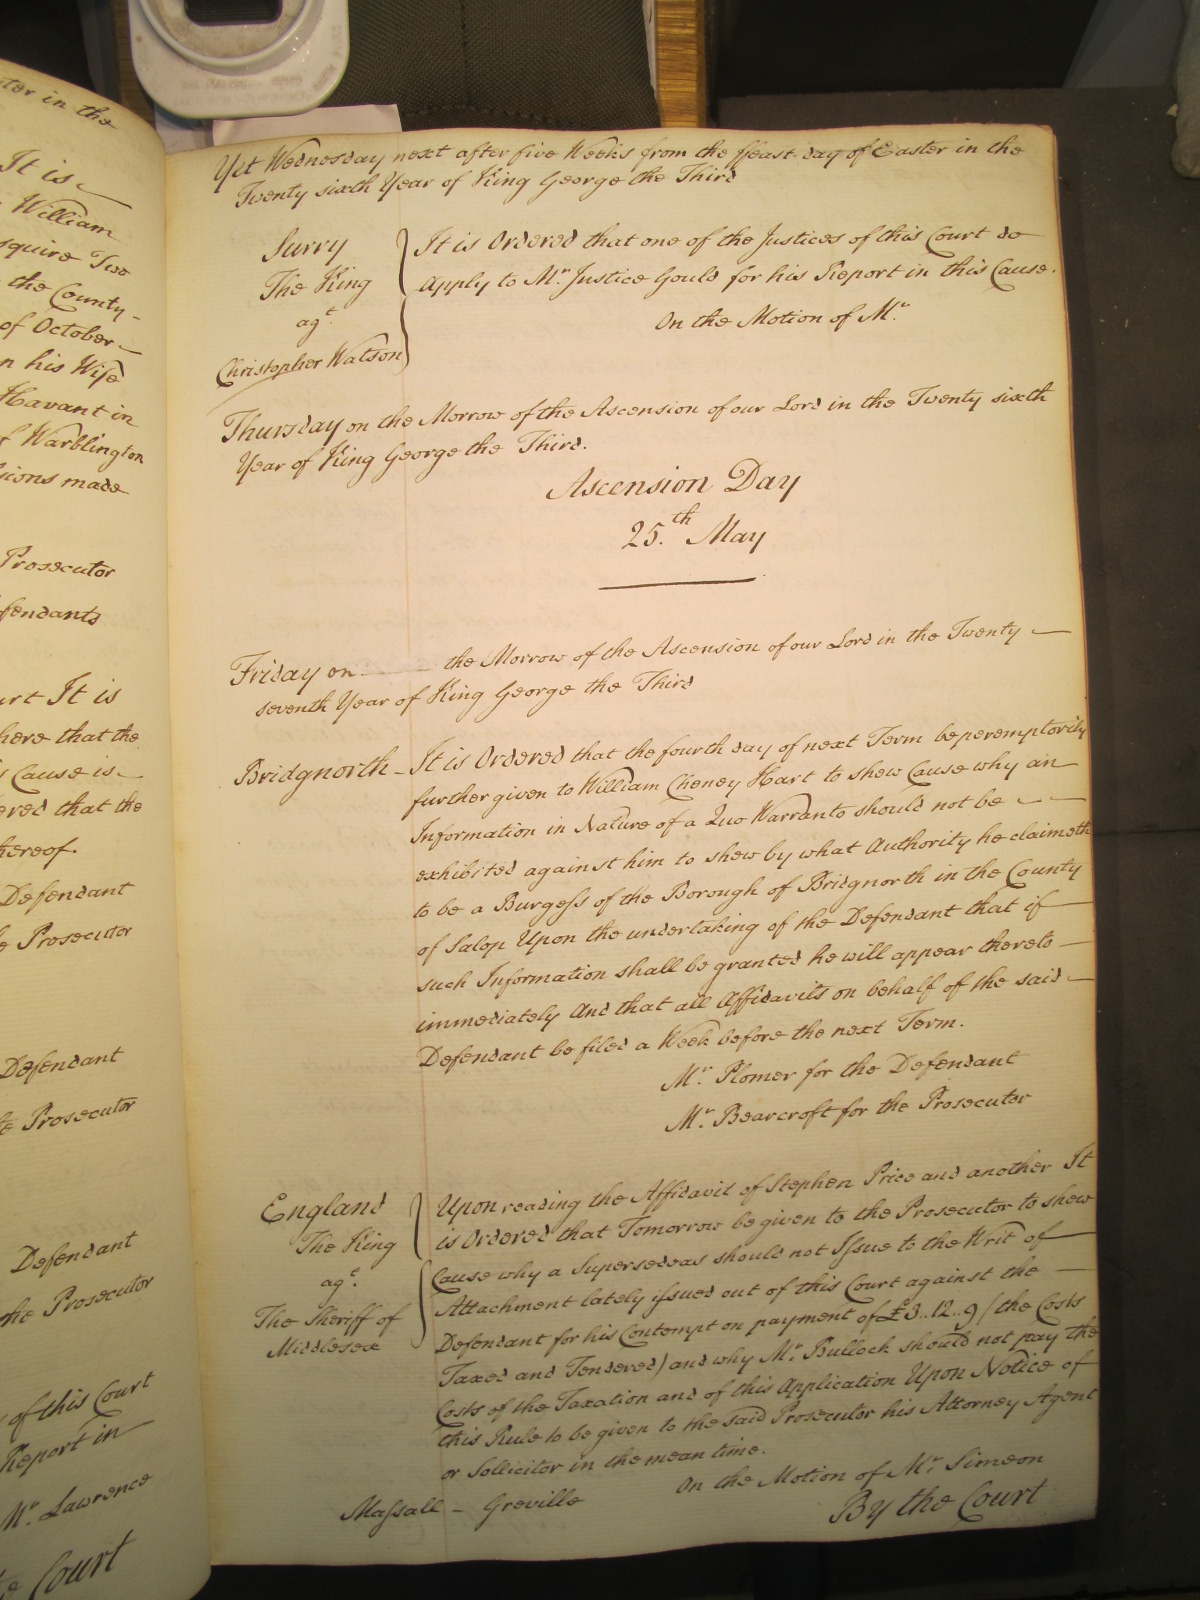 ter in the
It is
William
squire Two
the County
of October
n his Wife
Havant in
f Warblington
sions made
Prosecutor
fendants
urt It is
here that the
s Cause is
ered that the
hereof.
Defendant
e Prosecutor
Defendant
te Prosecutor
Defendant
the Prosecutor
of this Court
Report in
Mr. Lawrence
e Court
Yet Wednesday next after five Weeks from the ffeast day of Easter in the
Twenty sixth Year of King George the Third
Surry
The King
agt.
Christopher Watson
It is Ordered that one of the Justices of this Court do
Apply to Mr. Justice Gould for his Report in this Cause.
On the Motion of Mr.
Thursday on the Morrow of the Ascension of our Lord in the Twenty sixth
Year of King George the Third.
Ascension Day
25.th May
Friday on the Morrow of the Ascension of our Lord in the Twenty
seventh Year of King George the Third
Bridgnorth - It is Ordered that the fourth day of next Term be peremptorily
further given to William Cheney Hart to shew Cause why an
Information in Nature of a Quo Warranto should not be
exhibited against him to shew by what Authority he claimeth
to be a Burgess of the Borough of Bridgnorth in the County
of Salop Upon the undertaking of the Defendant that if
such Information shall be granted he will appear thereto
immediately And that all Affidavits on behalf of the said
Defendant be filed a Week before the next Term.
Mr. Plomer for the Defendant
Mr. Bearcroft for the Prosecutor
England
The King
agt.
The Sheriff of
Middlesex
Upon reading the Affidavit of Stephen Price and another It
is Ordered that Tomorrow be given to the Prosecutor to shew
Cause why a Supersedeas should not Issue to the Writ of
Attachment lately issued out of this Court against the
Defendant for his Contempt on payment of £3..12..9 (the Costs
Taxed and Tendered) and why Mr. Bullock should not pay the
Costs of the Taxation and of this Application Upon Notice of
this Rule to be given to the said Prosecutor his Attorney Agent
or Sollicitor in the mean time.
On the Motion of Mr. Simeon
Massall - Greville
By the Court